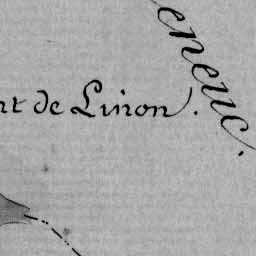 eneuc.
nt de Linon.